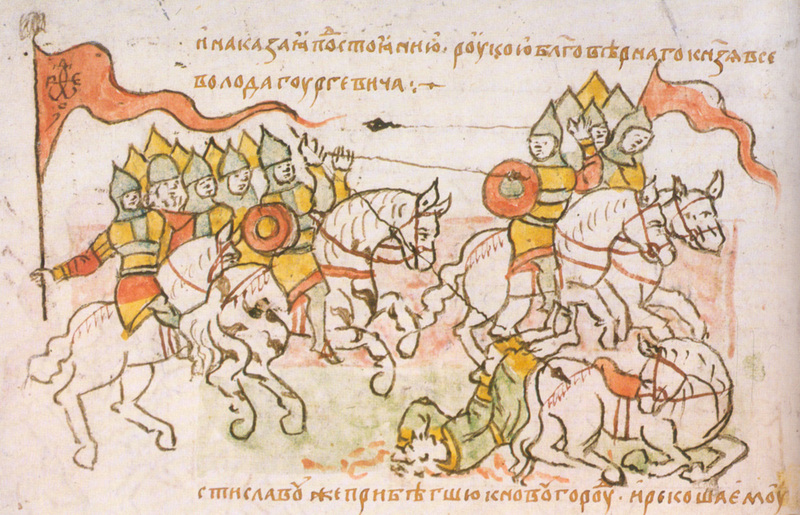 и наказаѧ достоꙗнию . роукою бл҃говѣрнаго кнѧзѧ все
волода гоургевича :
стиславоу же прибѣгшю к новоугороу . и рекоша емоу